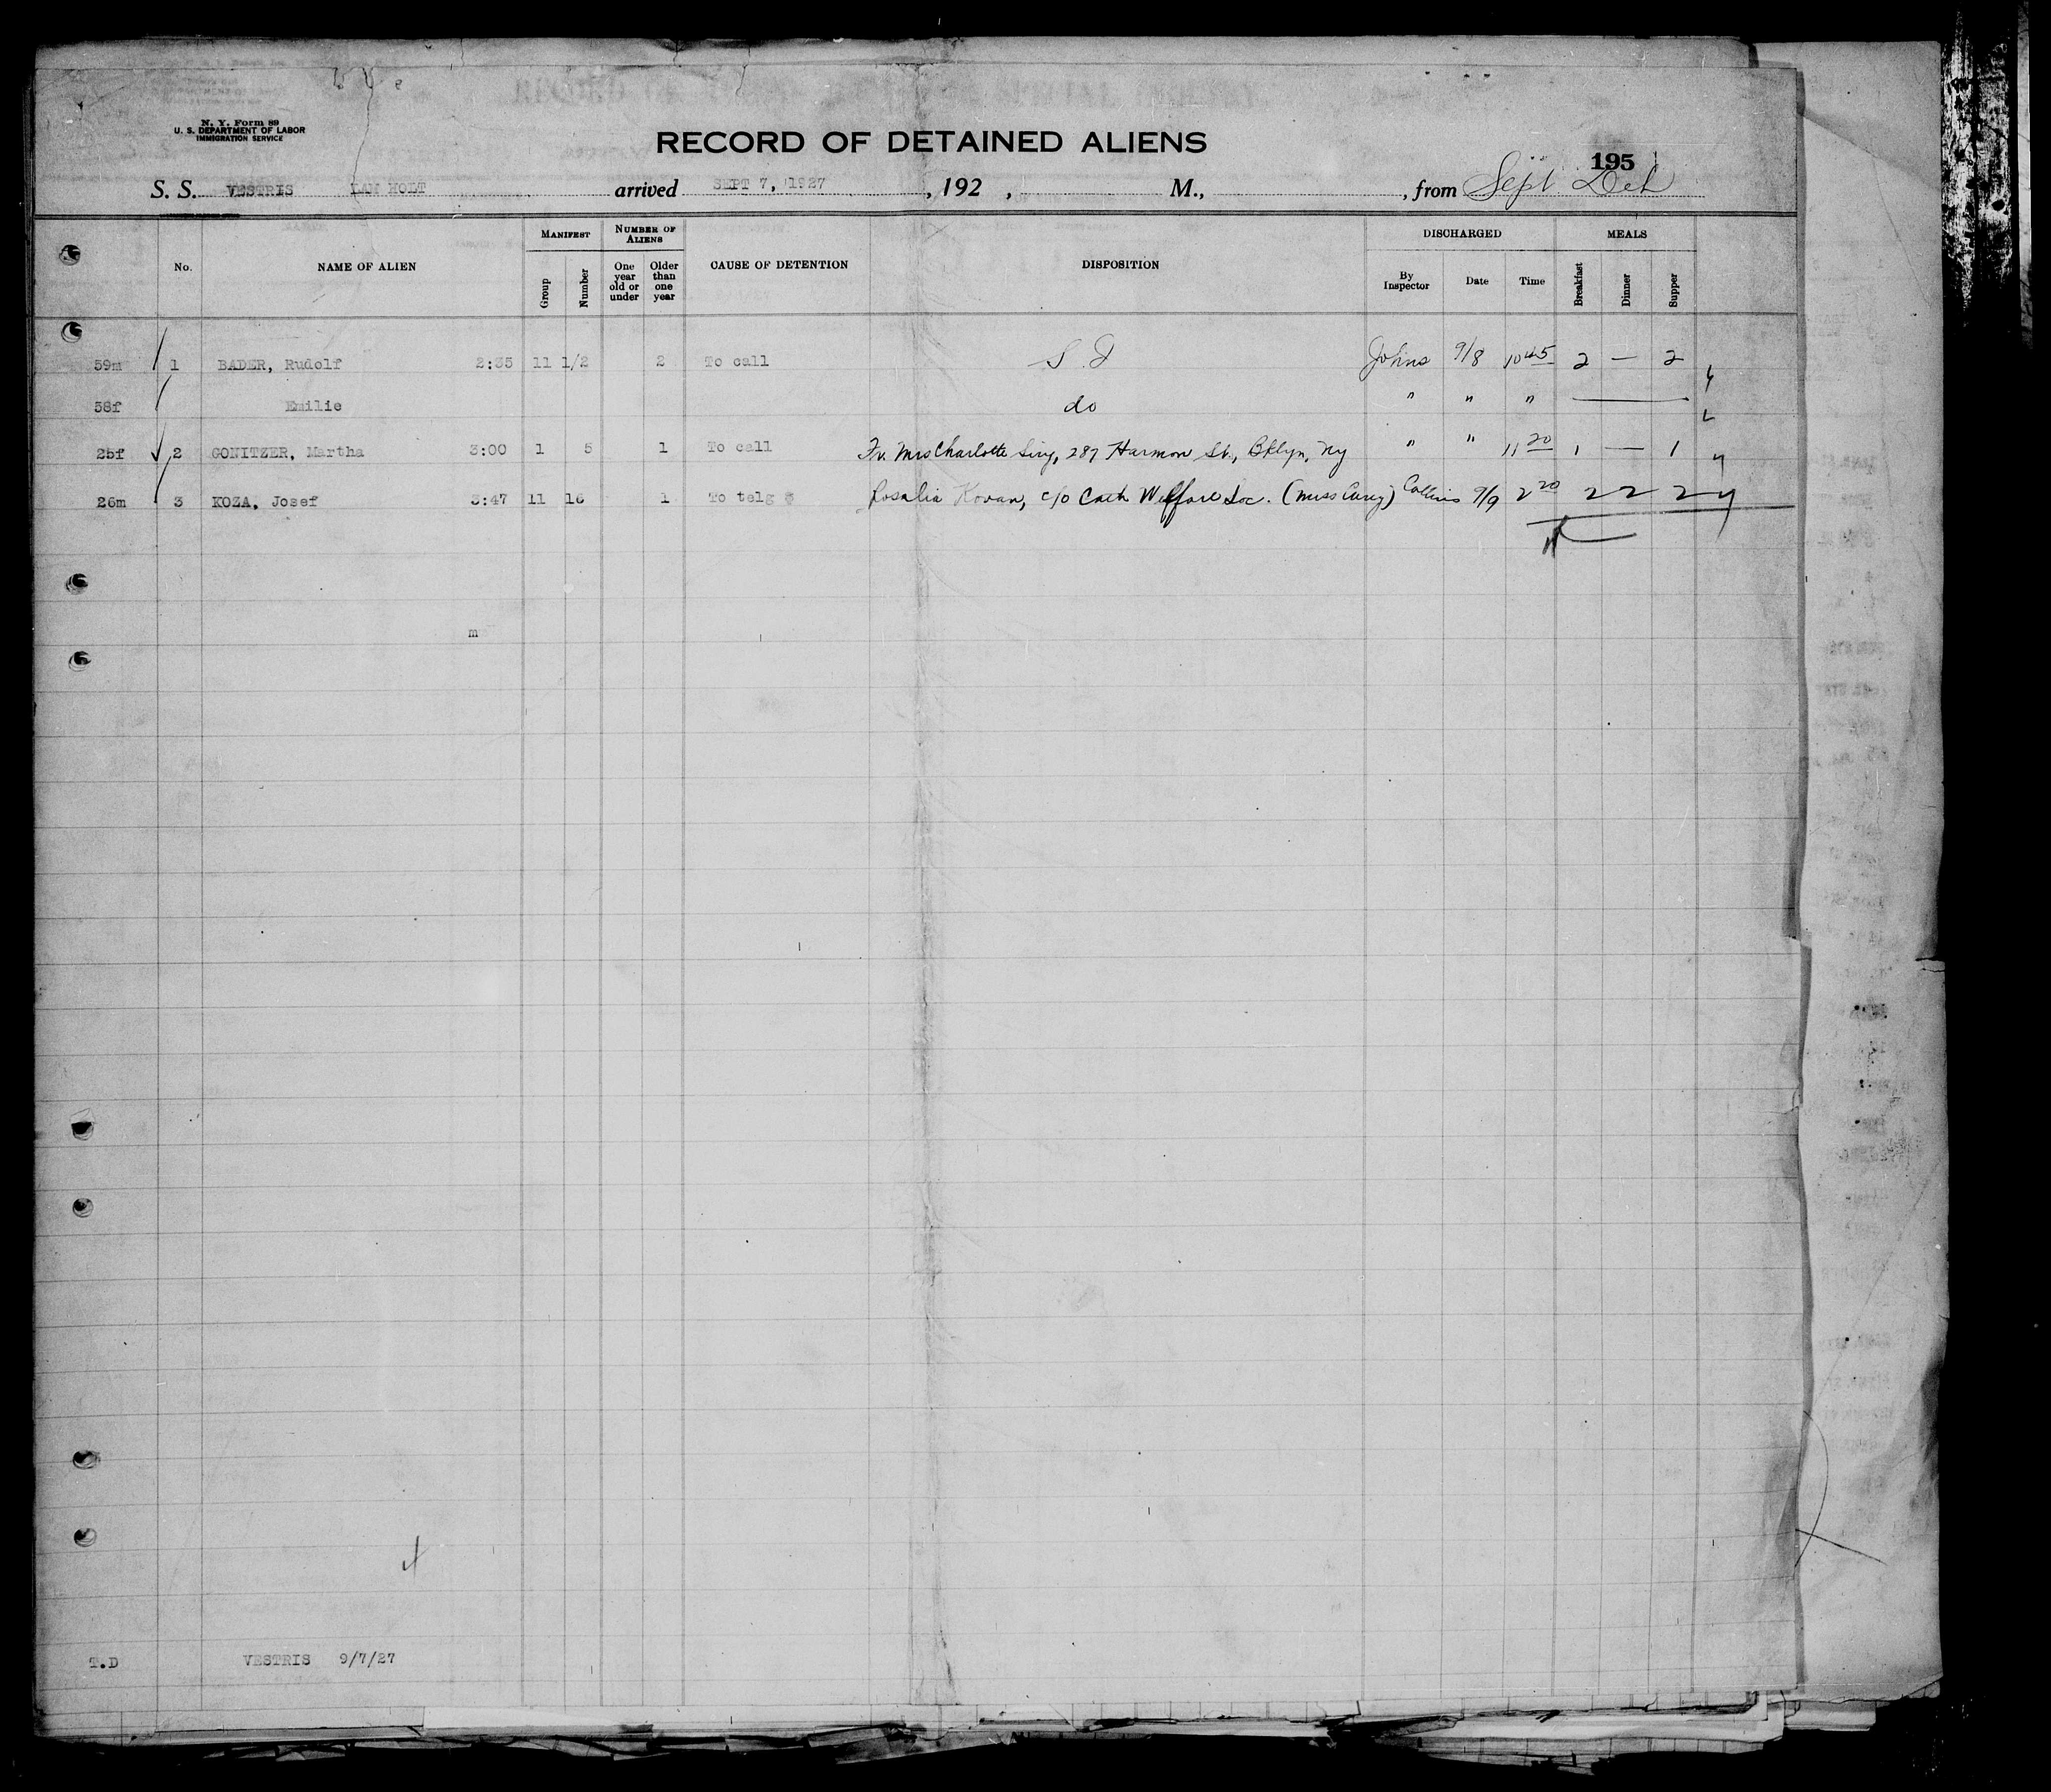 N. Y. Form 89
U. S. DEPARTMENT OF LABOR
IMMIGRATION SERVICE
RECORD OF DETAINED ALIENS
195
S. S. VESTRIS LAM HOLT arrived SEPT 7, 1927, 192 , M., , from Sept Det
No. NAME OF ALIEN MANIFEST NUMBER OF ALIENS CAUSE OF DETENTION DISPOSITION DISCHARGED MEALS
Group Number One year old or under Older than one year By Inspector Date Time Breakfast Dinner Supper
59m 1 BADER, Rudolf 2:35 11 1/2 2 To call S I Johns 9/8 10 45 2 — 2
58f Emilie do " " "
25f 2 GONITZER, Martha 3:00 1 5 1 To call Mrs Charlotte 287 Harmon St., Bklyn, Ny " " 11 20 1 — 1
26m 3 KOZA, Josef 3:47 11 16 1 To telg Rosalia Kovan, c/o Cath Welfare Soc. (Miss Carey) Collins 9/9 2 20 2 2 2
m
T.D VESTRIS 9/7/27